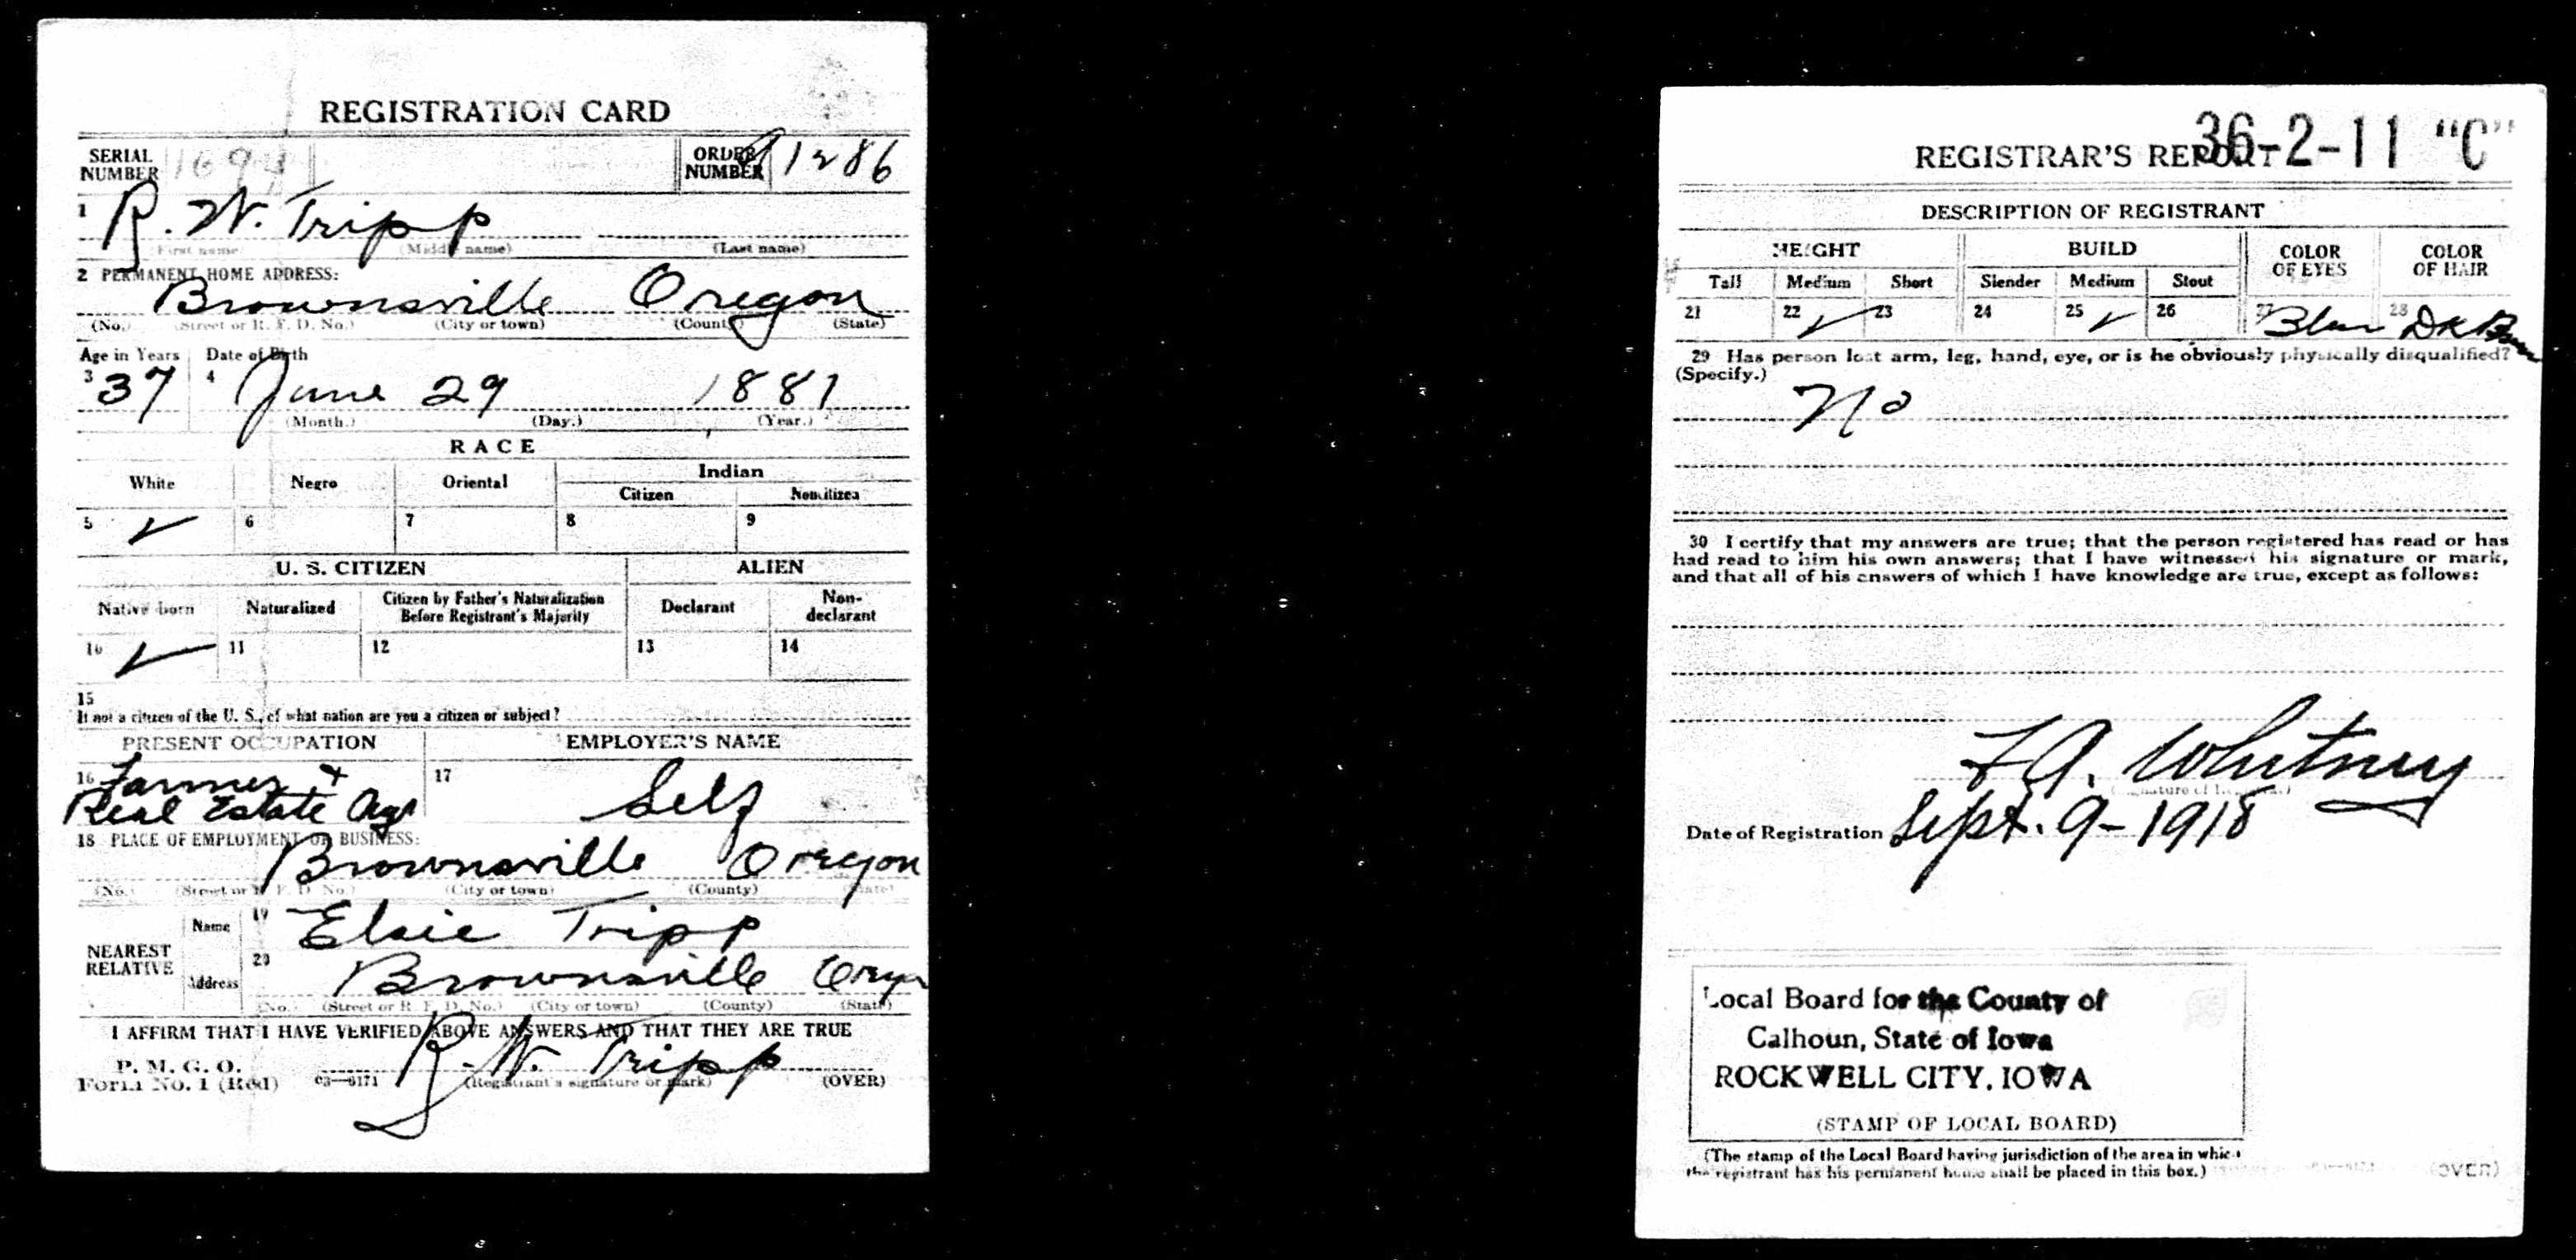 REGISTRATION CARD
SERIAL NUMBER
ORDER NUMBER A 1286
1 R. W. Tripp
(First name) (Middle name) (Last name)
2 PERMANENT HOME ADDRESS:
Brownsville Oregon
(No.) (Street or R. F. D. No.) (City or town) (County) (State)
Age in Years Date of Birth
3 37 4 June 29 1881
(Month.) (Day.) (Year.)
RACE
White Negro Oriental Indian
Citizen Noncitizen
5 ✓ 6 7 8 9
U. S. CITIZEN ALIEN
Native born Naturalized Citizen by Father's Naturalization Before Registrant's Majority Declarant Non-declarant
10 ✓ 11 12 13 14
15
If not a citizen of the U. S., of what nation are you a citizen or subject?
PRESENT OCCUPATION EMPLOYER'S NAME
16 Farmer + 17 Self
Real Estate Agt
18 PLACE OF EMPLOYMENT OR BUSINESS:
Brownsville Oregon
(No.) (Street or R. F. D. No.) (City or town) (County) (State)
NEAREST RELATIVE
Name 19 Elsie Tripp
Address 20 Brownsville Oregn
(No.) (Street or R. F. D. No.) (City or town) (County) (State)
I AFFIRM THAT I HAVE VERIFIED ABOVE ANSWERS AND THAT THEY ARE TRUE
P. M. G. O.
Form No. 1 (Red) 03—6171 R. W. Tripp
(Registrant's signature or mark) (OVER)
36-2-11 "C"
REGISTRAR'S REPORT
DESCRIPTION OF REGISTRANT
HEIGHT BUILD COLOR OF EYES COLOR OF HAIR
Tall Medium Short Slender Medium Stout
21 22 ✓ 23 24 25 ✓ 26 27 Blue 28 Dk Brn
29 Has person lost arm, leg, hand, eye, or is he obviously physically disqualified?
(Specify.)
No
30 I certify that my answers are true; that the person registered has read or has
had read to him his own answers; that I have witnessed his signature or mark,
and that all of his answers of which I have knowledge are true, except as follows:
F. A. Whitney
Date of Registration Sept. 9-1918
Local Board for the County of
Calhoun, State of Iowa
ROCKWELL CITY, IOWA
(STAMP OF LOCAL BOARD)
(The stamp of the Local Board having jurisdiction of the area in which
the registrant has his permanent home shall be placed in this box.)
(OVER)